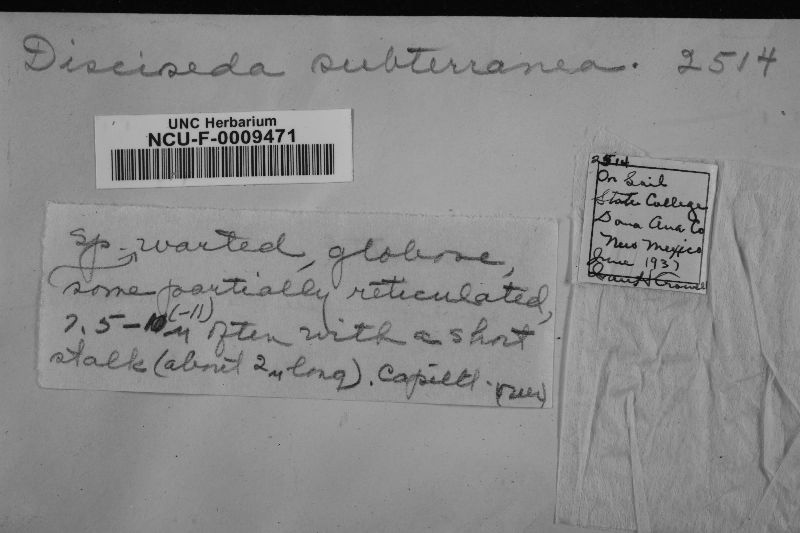 Disciseda subterranea. 2514
UNC Herbarium
NCU-F-0009471
2514
On Soil
State College
Dona Ana Co
New Mexico
June 1937
sp. warted, globose,
some partially reticulated,
7.5-10 (-11) µ often with a short
stalk (about 2 µ long). Capill. (over)